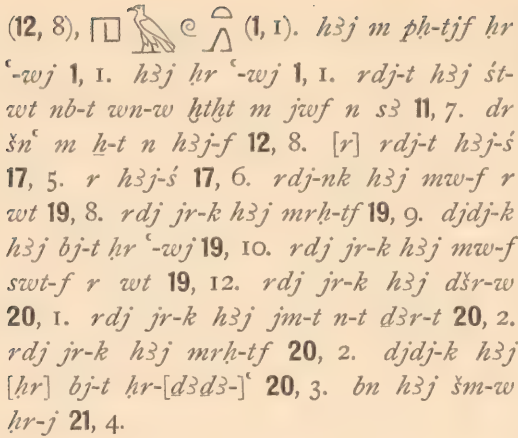 (12, 8), 𓉔𓄿𓏲𓂻 (1, 1). hꜣj m pḥ-tjf ḥr
ꜥ-wj 1, 1. hꜣj ḥr ꜥ-wj 1, 1. rdj-t hꜣj śt-
wt nb-t wn-w ẖtḫt m jwf n sꜣ 11, 7. dr
šnꜥ m ẖ-t n hꜣj-f 12, 8. [r] rdj-t hꜣj-ś
17, 5. r hꜣj-ś 17, 6. rdj-nk hꜣj mw-f r
wt 19, 8. rdj jr-k hꜣj mrḥ-tf 19, 9. djdj-k
hꜣj bj-t ḥr ꜥ-wj 19, 10. rdj jr-k hꜣj mw-f
swt-f r wt 19, 12. rdj jr-k hꜣj dšr-w
20, 1. rdj jr-k hꜣj jm-t n-t ḏꜣr-t 20, 2.
rdj jr-k hꜣj mrḥ-tf 20, 2. djdj-k hꜣj
[ḥr] bj-t ḥr-[ḏꜣḏꜣ-]ꜥ 20, 3. bn hꜣj šm-w
ḥr-j 21, 4.